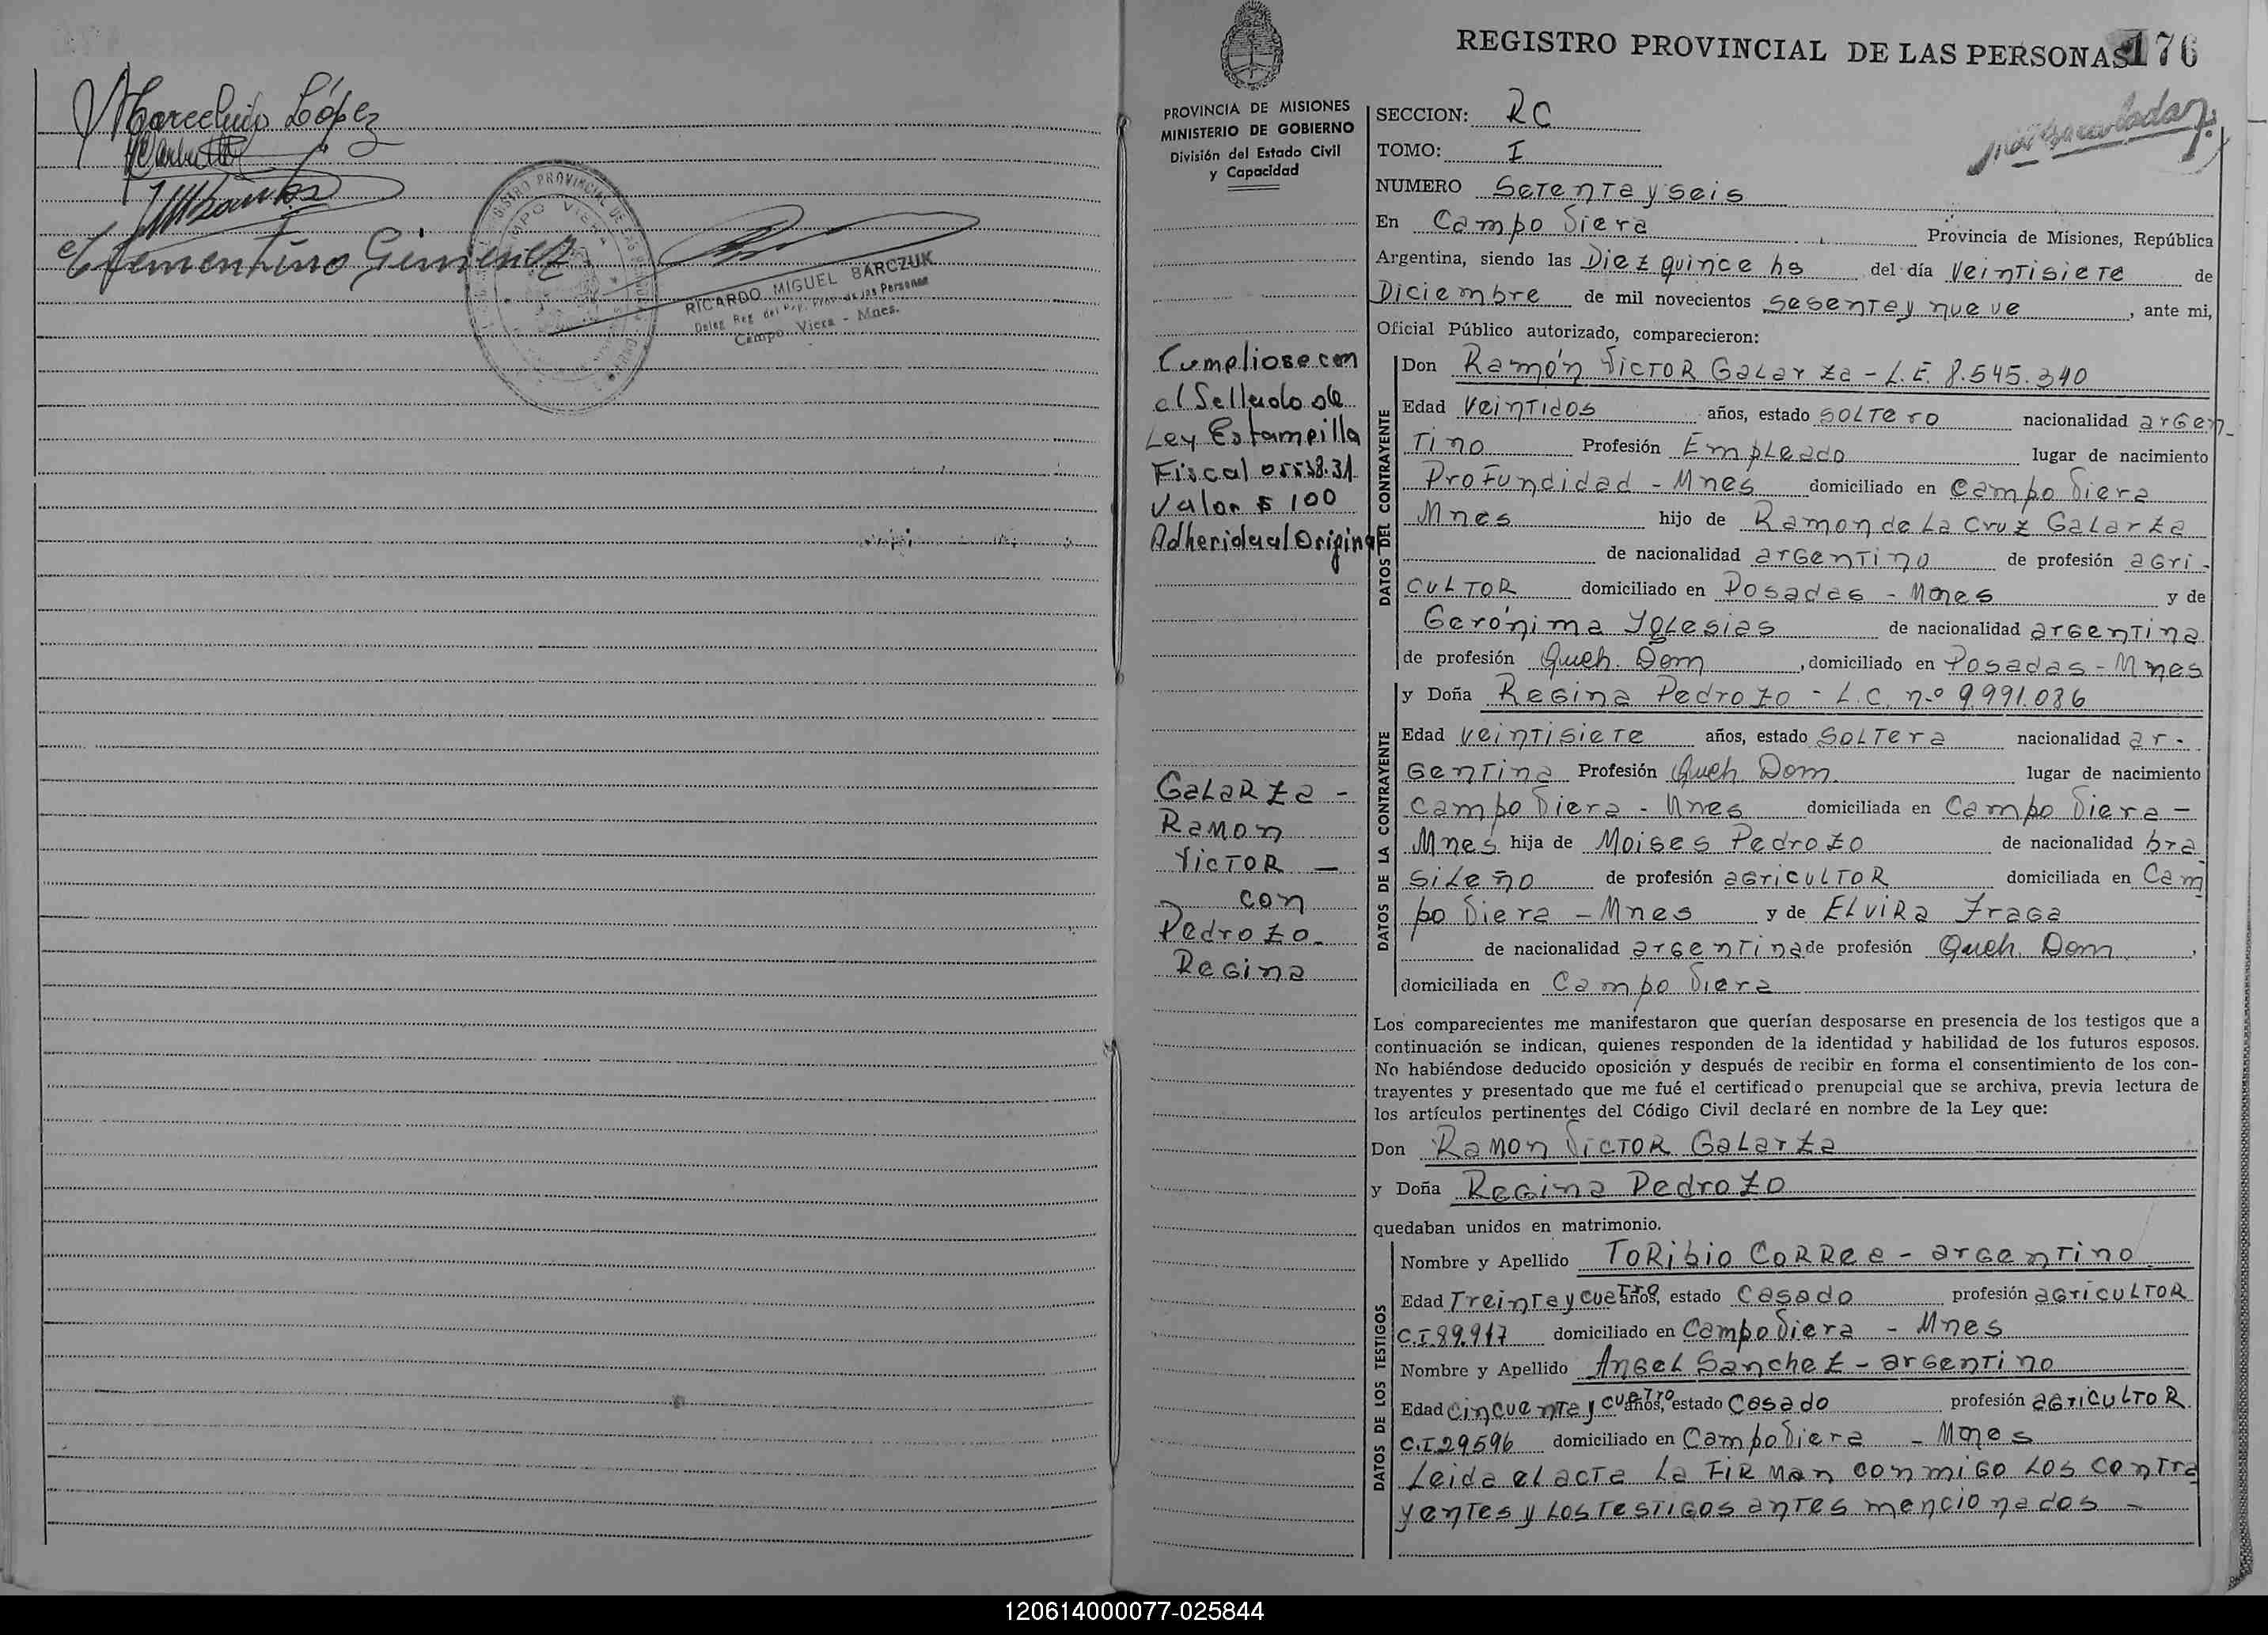 Marcelino López
Clementino Gimenez
RICARDO MIGUEL BARCZUK
Deleg. Reg. del Reg. Prov. de las Personas
Campo Viera - Mnes.
REGISTRO PROVINCIAL DE LAS PERSONAS
176
PROVINCIA DE MISIONES
MINISTERIO DE GOBIERNO
División del Estado Civil
y Capacidad
Cumpliose con
el Sellado de
Ley Estampilla
Fiscal 05538.31
Valor $ 100
Adherida al Original
GALARZA -
RAMON
VICTOR -
con
Pedrozo -
Regina
SECCION: RC
TOMO: I
NUMERO Setenta y seis
En Campo Viera Provincia de Misiones, República
Argentina, siendo las Diez quince hs del día Veintisiete de
Diciembre de mil novecientos sesenta y nueve, ante mi,
Oficial Público autorizado, comparecieron:
DATOS DEL CONTRAYENTE
Don Ramón Victor Galarza - L.E. 8.545.340
Edad Veintidos años, estado soltero nacionalidad argen-
tino Profesión Empleado lugar de nacimiento
Profundidad - Mnes domiciliado en Campo Viera
Mnes hijo de Ramon de la Cruz Galarza
de nacionalidad argentino de profesión agri-
cultor domiciliado en Posadas - Mnes y de
Gerónima Yglesias de nacionalidad argentina
de profesión Queh. Dom, domiciliado en Posadas - Mnes
DATOS DE LA CONTRAYENTE
y Doña Regina Pedrozo - L.C. nº 9.991.036
Edad veintisiete años, estado soltera nacionalidad ar-
gentina Profesión Queh. Dom. lugar de nacimiento
Campo Viera - Mnes domiciliada en Campo Viera -
Mnes hija de Moises Pedrozo de nacionalidad bra
sileño de profesión agricultor domiciliada en Cam
po Viera - Mnes y de Elvira Fraga
de nacionalidad argentina de profesión Queh. Dom,
domiciliada en Campo Viera
Los comparecientes me manifestaron que querían desposarse en presencia de los testigos que a
continuación se indican, quienes responden de la identidad y habilidad de los futuros esposos.
No habiéndose deducido oposición y después de recibir en forma el consentimiento de los con-
trayentes y presentado que me fué el certificado prenupcial que se archiva, previa lectura de
los artículos pertinentes del Código Civil declaré en nombre de la Ley que:
Don Ramon Victor Galarza
y Doña Regina Pedrozo
quedaban unidos en matrimonio.
DATOS DE LOS TESTIGOS
Nombre y Apellido Toribio Correa - argentino
Edad Treinta y cuatro años, estado Casado profesión agricultor
C.I. 89.917 domiciliado en Campo Viera - Mnes
Nombre y Apellido Angel Sanchez - argentino
Edad Cincuenta y cuatro años, estado Casado profesión agricultor
C.I. 29596 domiciliado en Campo Viera - Mnes
Leida el acta la firman conmigo los contra
yentes y los testigos antes mencionados -
120614000077-025844